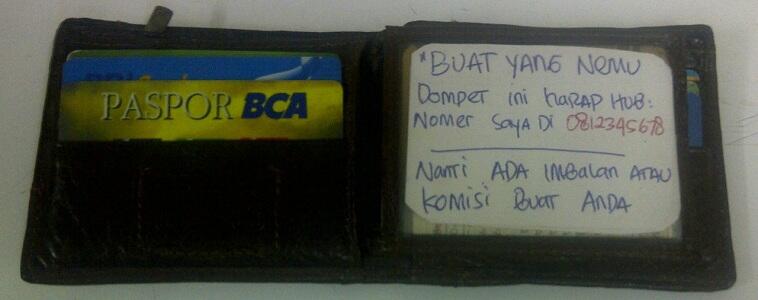 PASPOR BCA
*BUAT YANG NEMU
Dompet ini HARAP HUB:
Nomer saya Di 0812345678
Nanti ADA IMBALAN ATAU
KOMISI BUAT ANDA